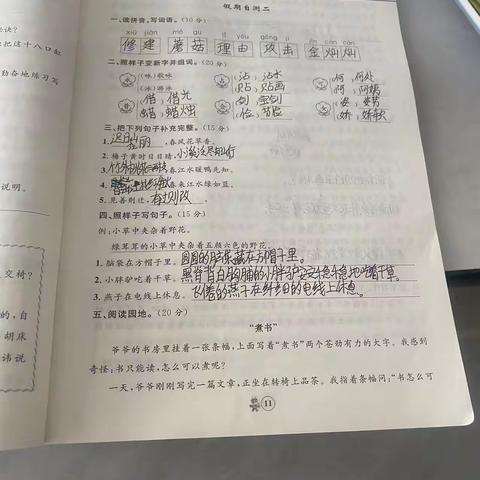 诀?
把这十八口缸
勤奋地练习写
说明。
交椅?
的,自
胡床
讳说
假期自测二
一、读拼音,写词语。(10分)
xiū jiàn mó gu lǐ yóu gōng jī jīn càn càn
修建 蘑菇 理由 攻击 金灿灿
二、照样子变新字并组词。(20分)
(味)歌味 沾,沾水 何,何处
(泳)游泳 贴,贴画 阿,阿姨
借,借光 剑,宝剑
蜡,蜡烛 俭,节俭 娇,娇软
三、把下列句子补充完整。(15分)
1.迟日江山丽,春风花草香。
2.梅子黄时日日晴,小溪泛尽却山行
3.竹外桃花三两枝春江水暖鸭先知。
4.春来江水绿如蓝。
5.见善则迁,有过则改
四、照样子写句子。(15分)
例:小草中夹杂着野花。
绿茸茸的小草中夹杂着五颜六色的野花。
1.脑袋在方帽子里。圆圆的脑袋藏在方帽子里。
2.小胖驴吃着干草。
3.燕子在电线上休息。的燕子在纤细的电线上休息。
五、阅读园地。(20分)
“煮书”
爷爷的书房里挂着一张条幅,上面写着“煮书”两个苍劲有力的大字。我感到
奇怪:书只能读,怎么可以煮呢?
一天,爷爷刚刚写完一篇文章,正坐在转椅上品茶。我指着条幅问:“书怎么可
11